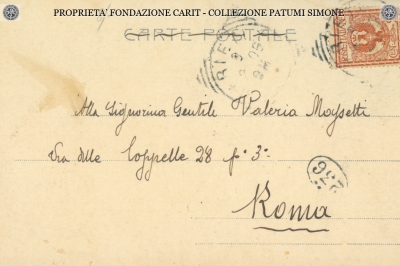 PROPRIETA' FONDAZIONE CARIT - COLLEZIONE PATUMI SIMONE
CARTE POSTALE
RIETI
Alla Signorina Gentile Valeria Maysetti
Via delle Coppelle 28 p° 3°
236
Roma